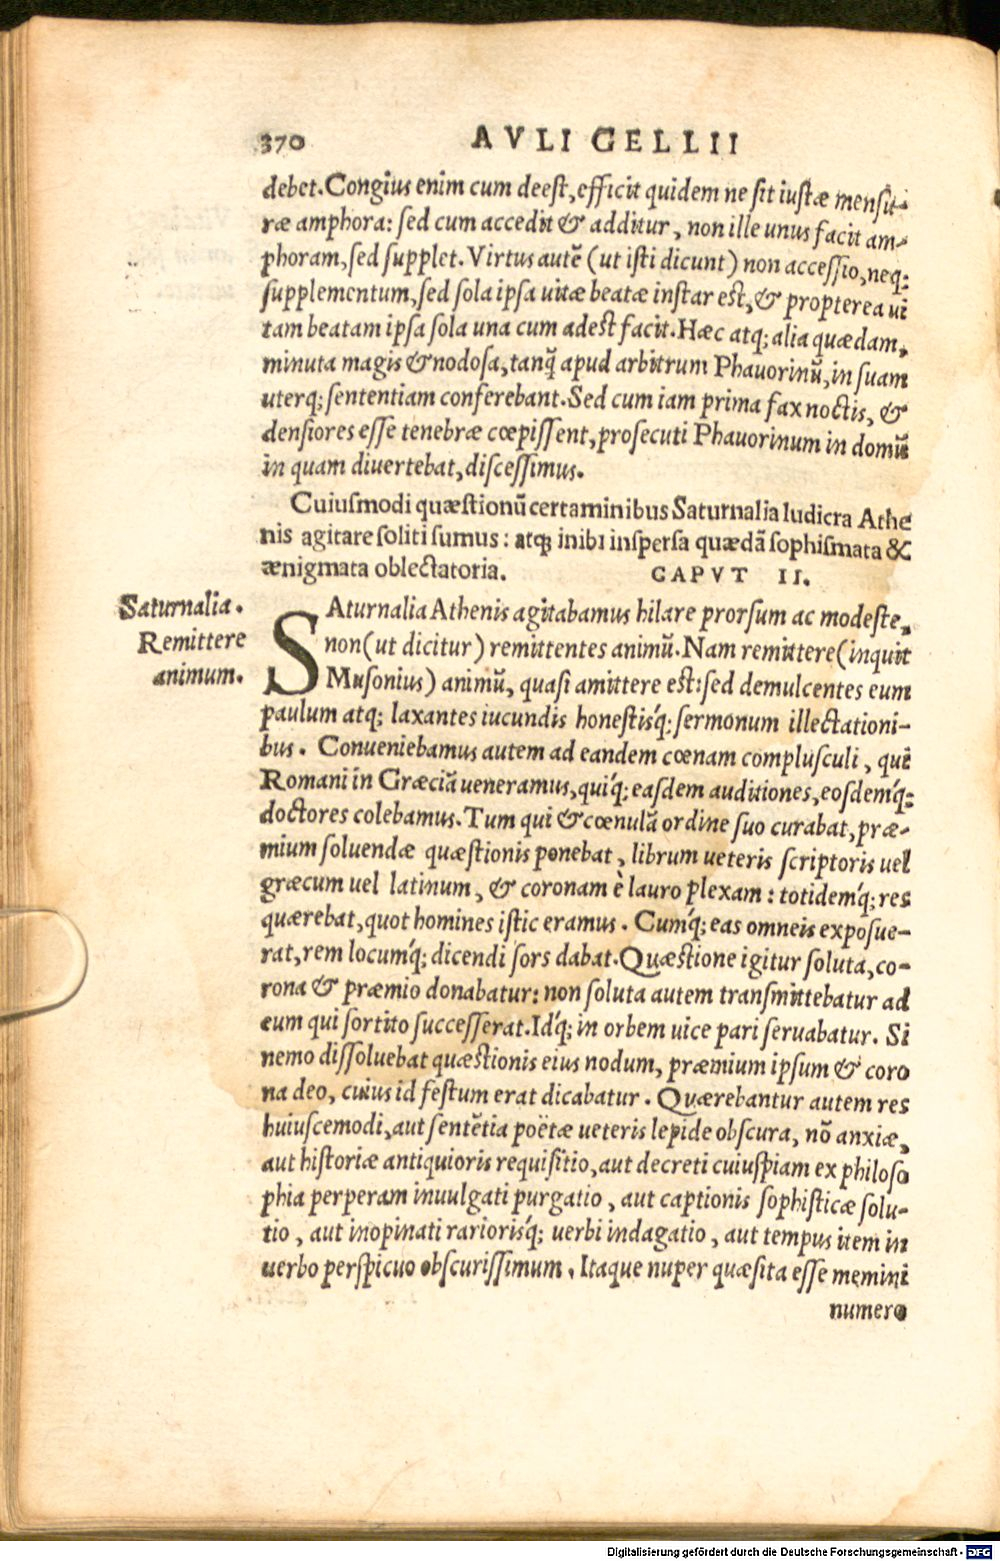 370 AVLI GELLII
debet. Congius enim cum deest, efficit quidem ne sit iustæ mensu-
ræ amphora: sed cum accedit & additur, non ille unus facit am-
phoram, sed supplet. Virtus autẽ (ut isti dicunt) non accessio, neq;
supplementum, sed sola ipsa uitæ beatæ instar est, & propterea ui
tam beatam ipsa sola una cum adest facit. Hæc atq; alia quædam,
minuta magis & nodosa, tanq̃ apud arbitrum Phauorinũ, in suam
uterq; sententiam conferebant. Sed cum iam prima fax noctis, &
densiores esse tenebræ cœpissent, prosecuti Phauorinum in domũ
in quam diuertebat, discessimus.
Cuiusmodi quæstionũ certaminibus Saturnalia ludicra Athe
nis agitare soliti sumus: atq; inibi inspersa quædã sophismata &
ænigmata oblectatoria. CAPVT II.
Saturnalia.
Remittere
animum.
SAturnalia Athenis agitabamus hilare prorsum ac modeste,
non (ut dicitur) remittentes animũ. Nam remittere (inquit
Musonius) animũ, quasi amittere est: sed demulcentes eum
paulum atq; laxantes iucundis honestisq́; sermonum illectationi-
bus. Conueniebamus autem ad eandem cœnam complusculi, qui
Romani in Græciã ueneramus, quiq́; easdem auditiones, eosdemq́;
doctores colebamus. Tum qui & cœnulã ordine suo curabat, præ-
mium soluendæ quæstionis ponebat, librum ueteris scriptoris uel
græcum uel latinum, & coronam è lauro plexam: totidemq́; res
quærebat, quot homines istic eramus. Cumq́; eas omneis exposue-
rat, rem locumq́; dicendi sors dabat. Quæstione igitur soluta, co-
rona & præmio donabatur: non soluta autem transmittebatur ad
eum qui sortito successerat. Idq́; in orbem uice pari seruabatur. Si
nemo dissoluebat quæstionis eius nodum, præmium ipsum & coro
na deo, cuius id festum erat dicabatur. Quærebantur autem res
huiuscemodi, aut sentẽtia poëtæ ueteris lepide obscura, nõ anxiæ,
aut historiæ antiquioris requisitio, aut decreti cuiuspiam ex philoso
phia perperam inuulgati purgatio, aut captionis sophisticæ solu-
tio, aut inopinati rariorisq́; uerbi indagatio, aut tempus item in
uerbo perspicuo obscurissimum. Itaque nuper quæsita esse memini
numero
Digitalisierung gefördert durch die Deutsche Forschungsgemeinschaft - DFG